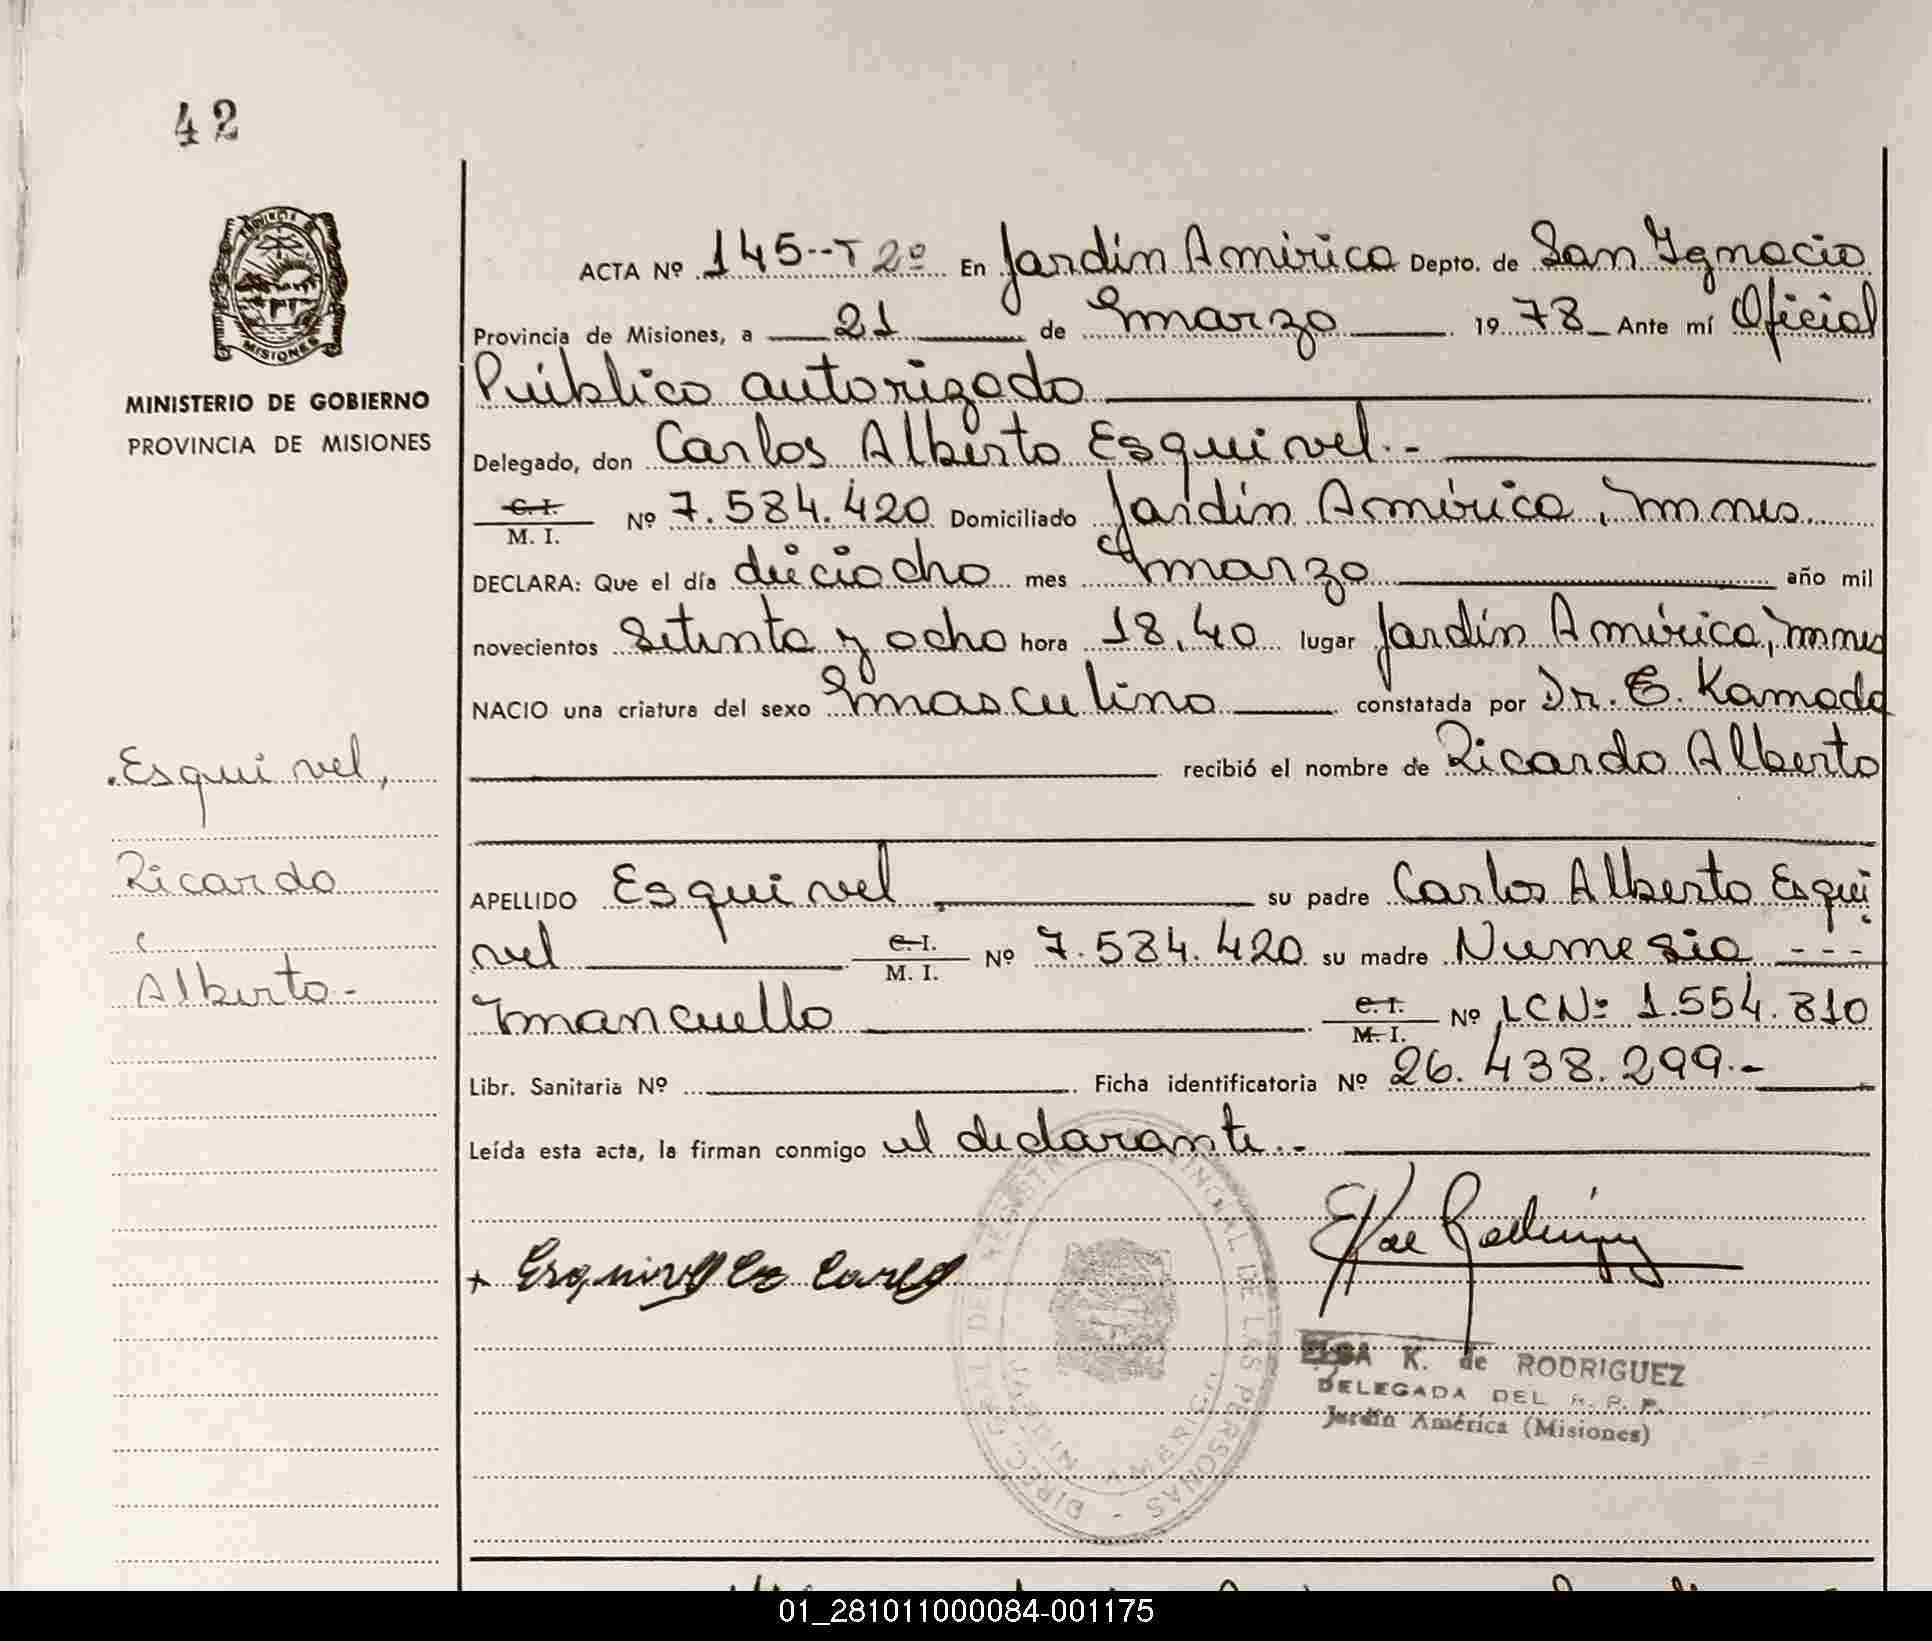 42
PROVINCIA DE
MISIONES
MINISTERIO DE GOBIERNO
PROVINCIA DE MISIONES
ACTA Nº 145--T 2º En Jardín América Depto. de San Ignacio
Provincia de Misiones, a 21 de marzo 1978 Ante mí Oficial
Público autorizado
Delegado, don Carlos Alberto Esquivel.-
C. I.
M. I. Nº 7.584.420 Domiciliado Jardín América, Mnes
DECLARA: Que el día dieciocho mes marzo año mil
novecientos setenta y ocho hora 18,40 lugar Jardín América, Mnes
NACIO una criatura del sexo masculino constatada por Dr. E. Kamada
recibió el nombre de Ricardo Alberto
Esquivel,
Ricardo
Alberto-
APELLIDO Esquivel su padre Carlos Alberto Esqui
vel C. I. M. I. Nº 7.584.420 su madre Numesia ---
Mancuello C. I. M. I. Nº LCNº 1.554.810
Libr. Sanitaria Nº Ficha identificatoria Nº 26.438.299.-
Leída esta acta, la firman conmigo el declarante.-
DIRECC. GRAL. DEL REGISTRO PROVINCIAL DE LAS PERSONAS
JARDIN AMERICA
ELSA K. de RODRIGUEZ
DELEGADA DEL R. P. P.
Jardín América (Misiones)
01_281011000084-001175